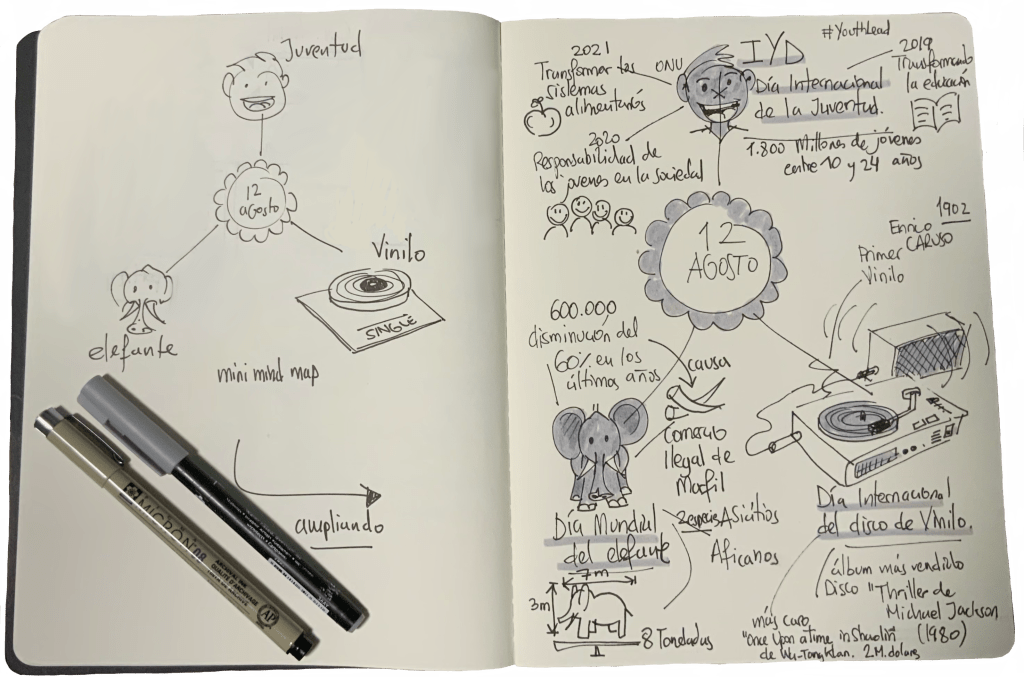 Juventud
12
agosto
Vinilo
SINGLE
elefante
mini mind map
ampliando
MICRON 08
ARCHIVAL INK
AP
#YouthLead
IYD
Día Internacional
de la Juventud.
1.800 Millones de jóvenes
entre 10 y 24 años
2021
ONU
Transformar los
sistemas
alimentarios
2019
Transformando
la educación
2020
Responsabilidad de
los jovenes en la sociedad
12
AGOSTO
1902
Enrico
CARUSO
Primer
Vinilo
600.000
disminución del
60% en los
últimos años
causa
Comercio
Ilegal de
Marfil
Día Mundial
del elefante
2 especies ASiátios
Aficanos
7m
3m
8 Toneladas
Día Internacional
del disco de Vinilo.
álbum más vendido
Disco "Thriller de
Michael Jackson
(1980)
más caro
"Once Upon a time in Shaolin"
de Wu-Tang Klan. 2M. dolares